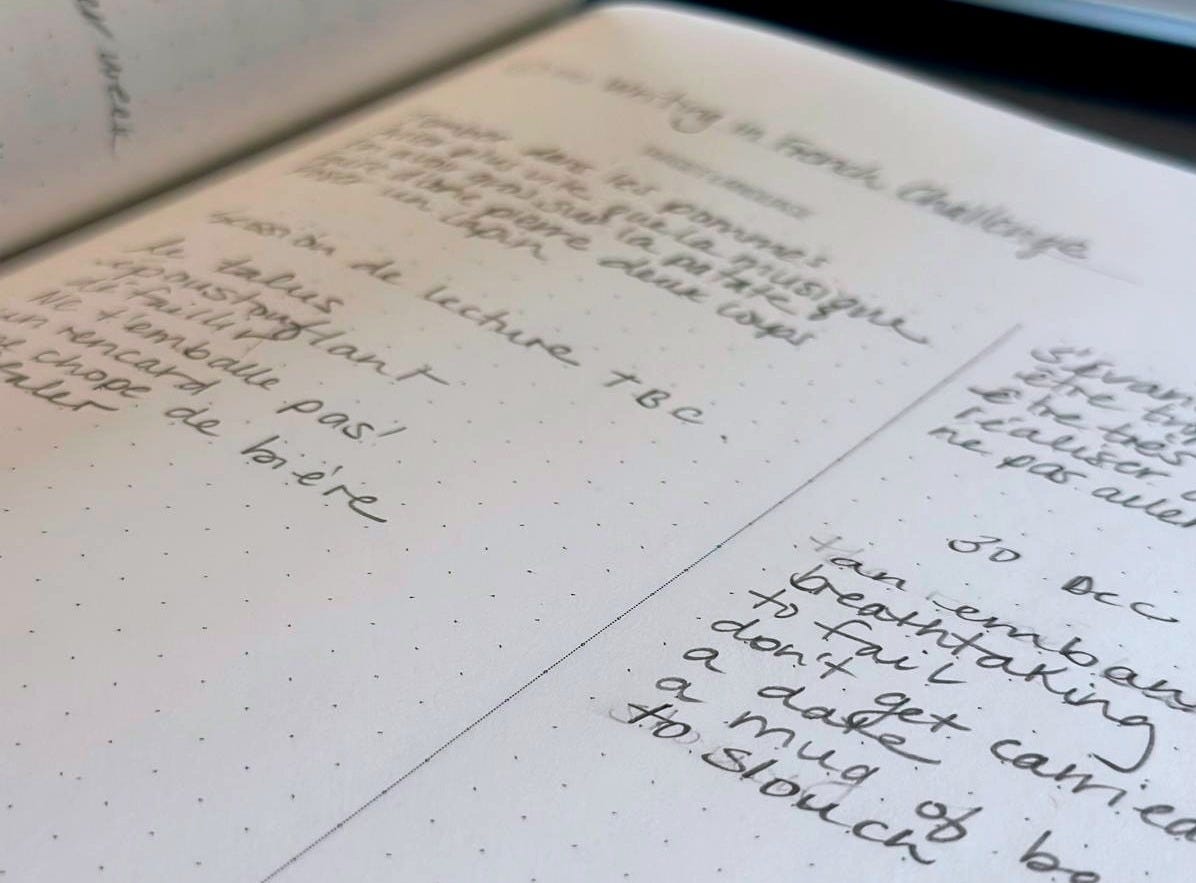 er week
Writing in French Challenge
Tomber dans les pommes
plus vite que la musique
sur la patate
pierre deux coups
un lapin
session de lecture TBC.
le talus
époustouflant
défaillir
Ne t'emballe pas!
un rencard
chope de bière
S'évan
être
être très
réaliser
ne pas aller
30 Dec
an emban
breathtaking
to fail
don't get carried
a date
a mug of be
to slouch